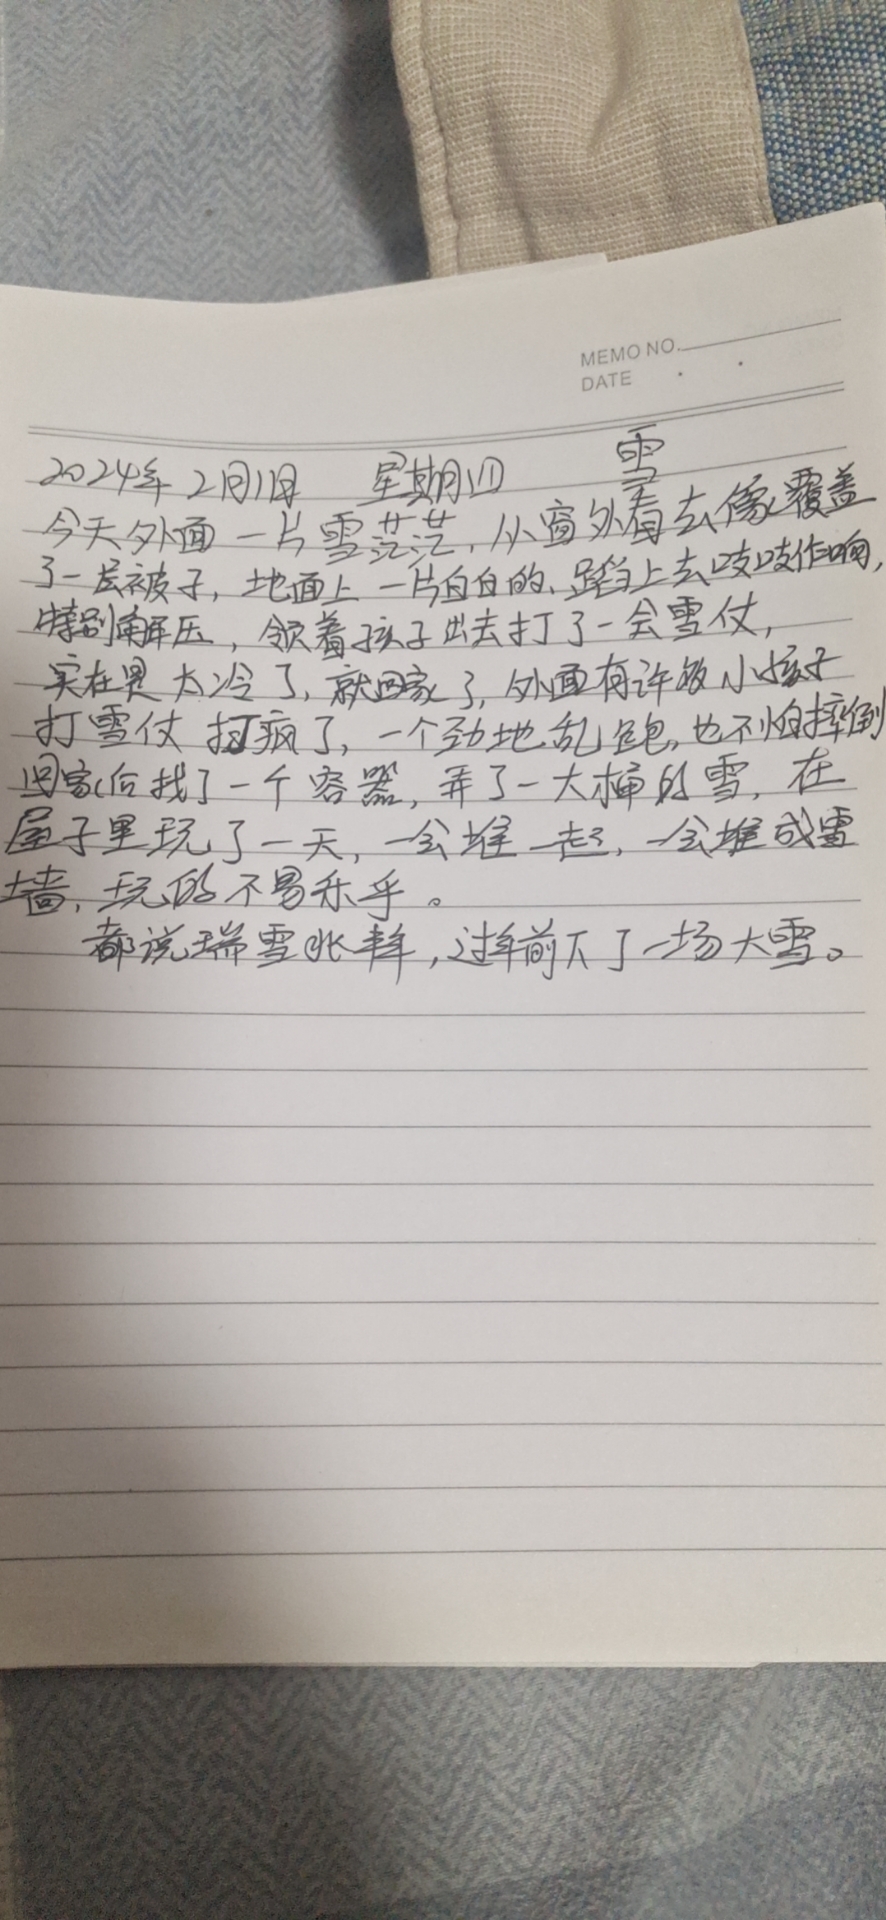 MEMO NO.
DATE
2024年2月1日 星期四 雪
今天外面一片雪茫茫,从窗外看去像覆盖
了一层被子,地面上一片白白的、踩上去吱吱作响,
特别解压,领着孩子出去打了一会雪仗,
实在是太冷了,就回家了,外面有许多小孩子
打雪仗 打疯了,一个劲地乱跑,也不怕摔倒
回家后找了一个容器,弄了一大桶的雪,在
屋子里玩了一天,一会堆一起,一会堆成雪
墙,玩的不易乐乎。
都说瑞雪兆丰年,过年前下了一场大雪。